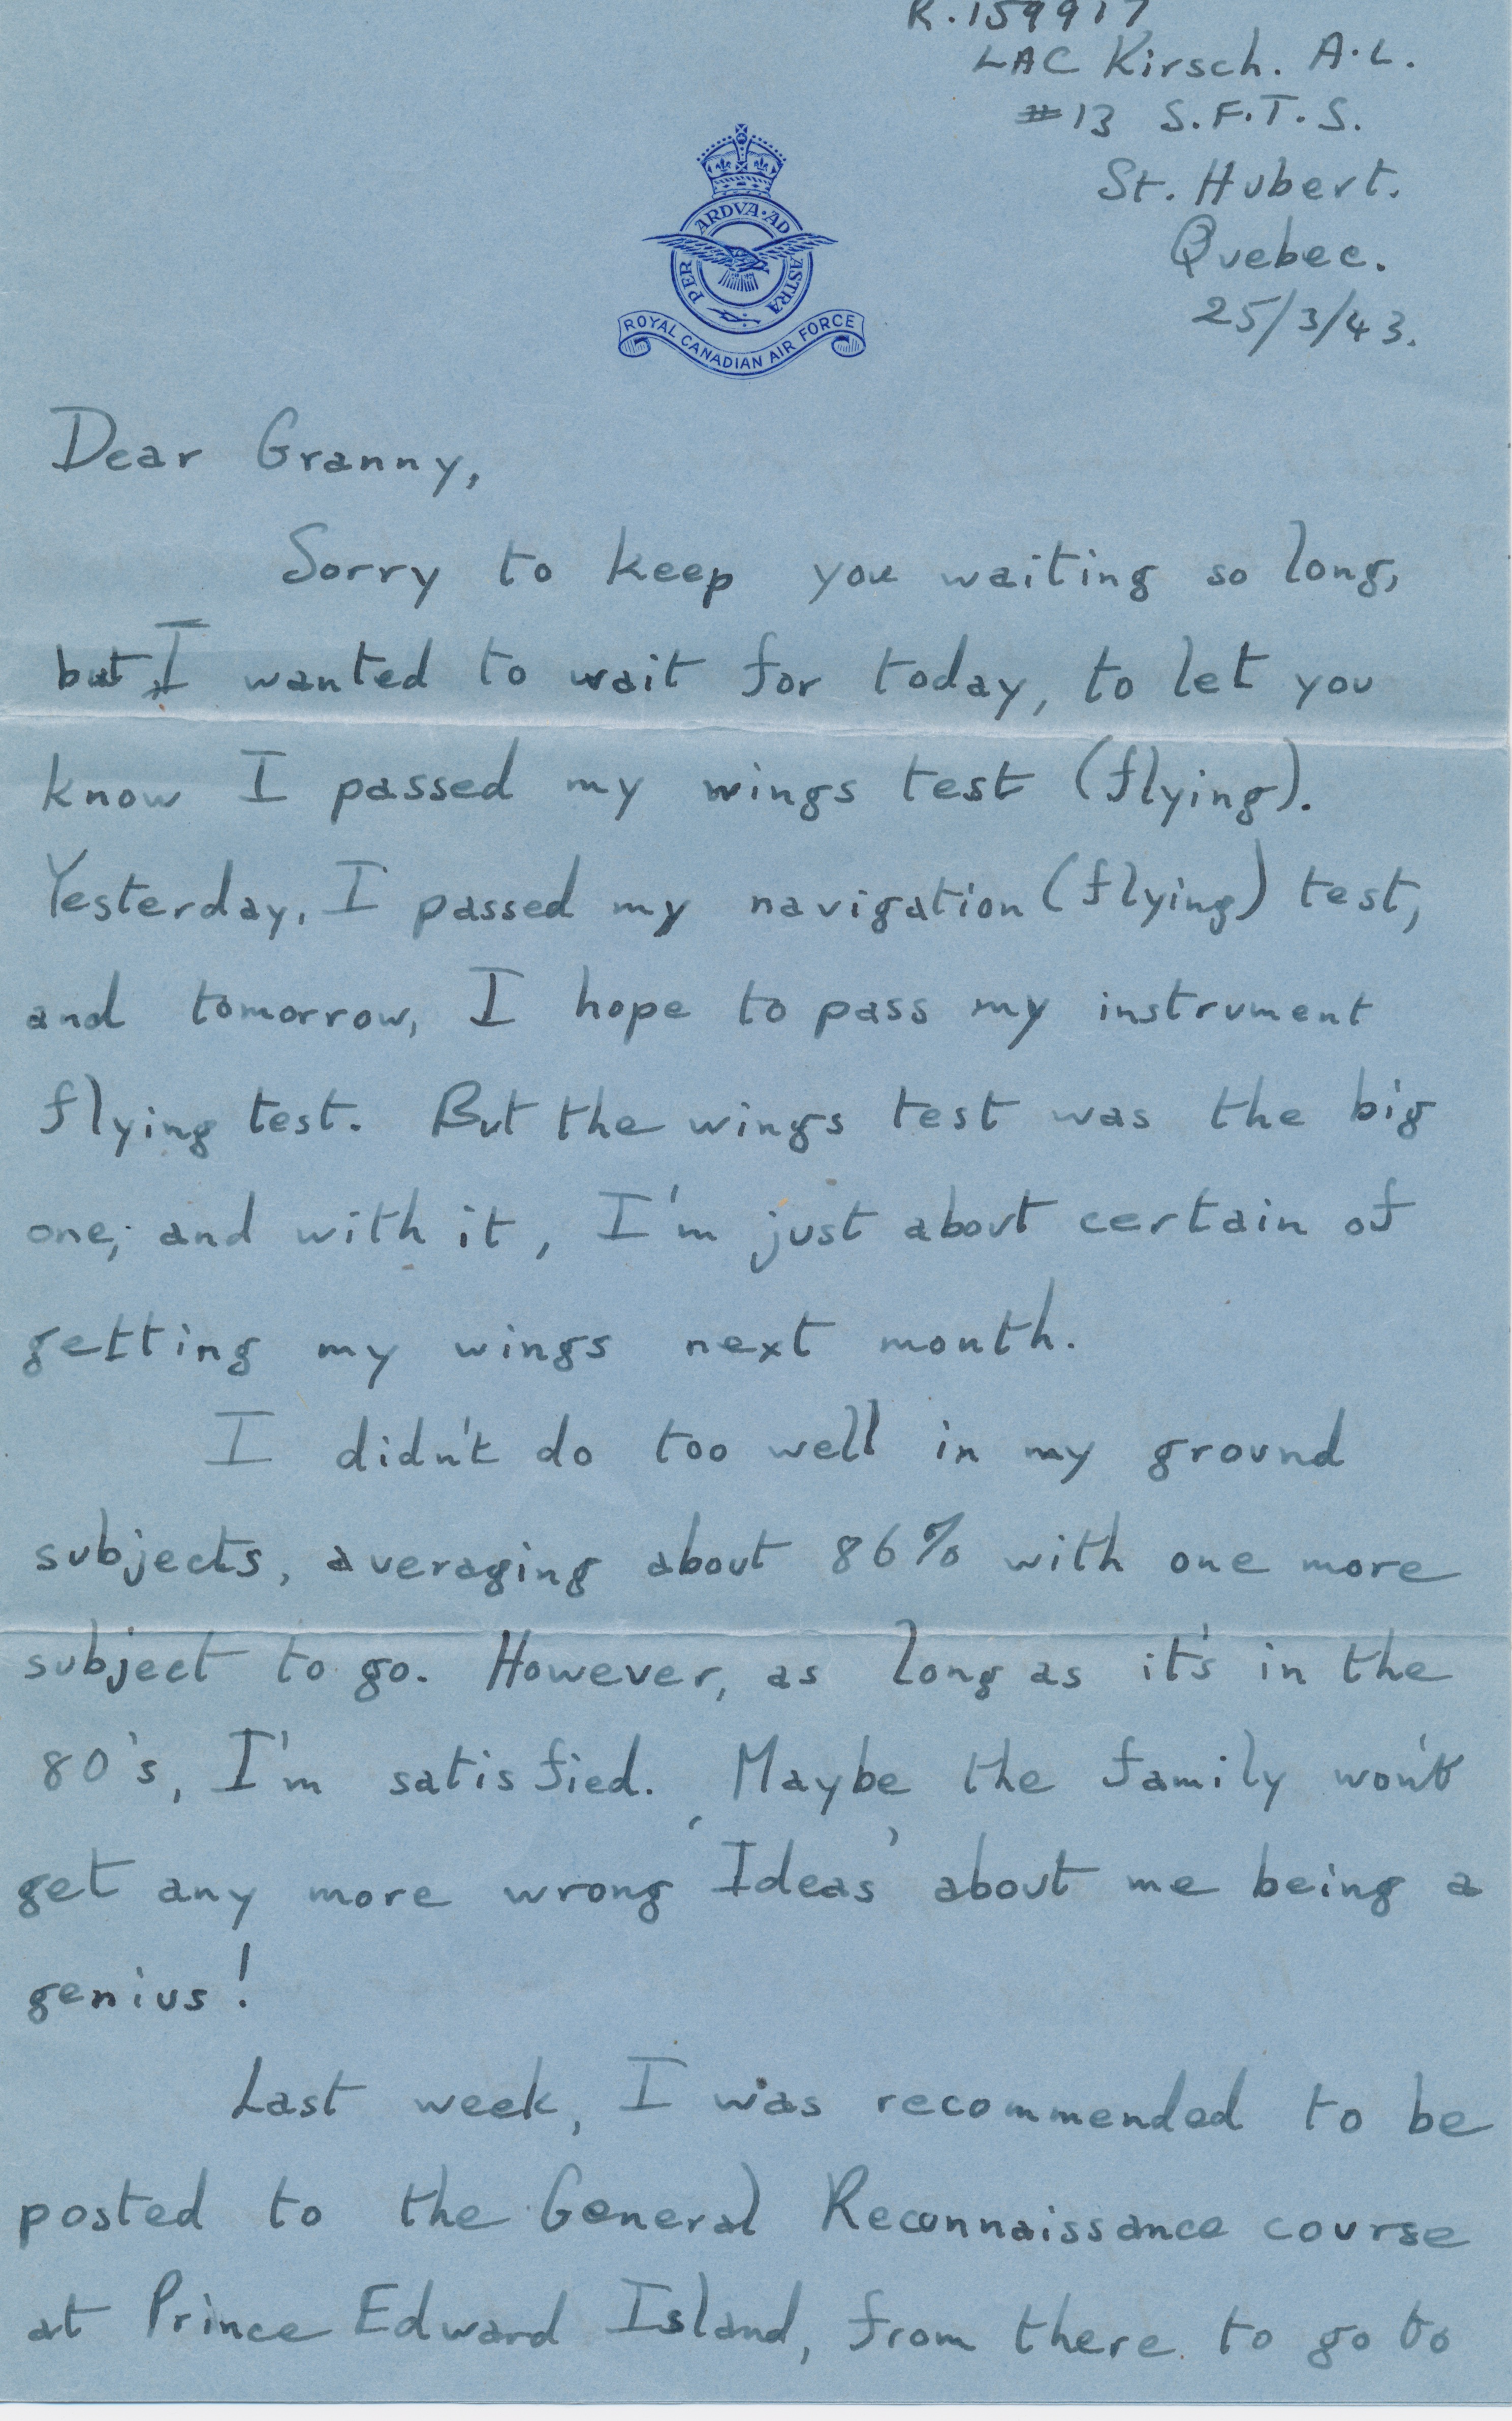 R.159917
LAC Kirsch. A.L.
#13 S.F.T.S.
St. Hubert.
Quebec.
25/3/43.
PER ARDVA·AD ASTRA
ROYAL CANADIAN AIR FORCE
Dear Granny,
Sorry to keep you waiting so long,
but I wanted to wait for today, to let you
know I passed my wings test (flying).
Yesterday, I passed my navigation (flying) test,
and tomorrow, I hope to pass my instrument
flying test. But the wings test was the big
one; and with it, I'm just about certain of
getting my wings next month.
I didn't do too well in my ground
subjects, averaging about 86% with one more
subject to go. However, as long as it's in the
80's, I'm satisfied. Maybe the family won't
get any more wrong 'Ideas' about me being a
genius!
Last week, I was recommended to be
posted to the General Reconnaissance course
at Prince Edward Island, from there to go to